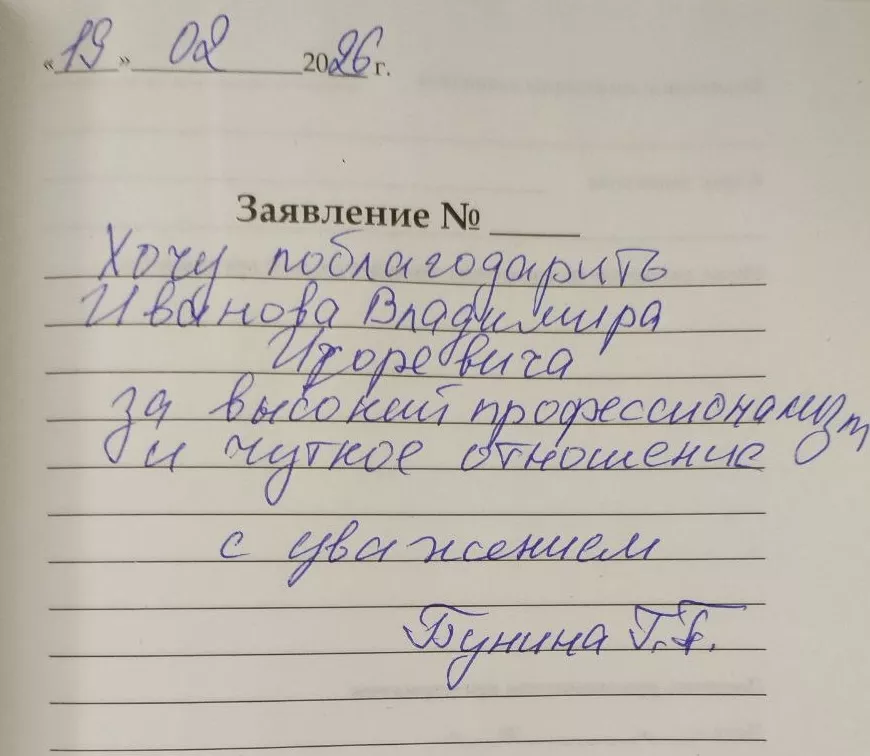 «19» 02 2026 г.
Заявление № ____
Хочу поблагодарить
Иванова Владимира
Игоревича
за высокий профессионализм
и чуткое отношение
с уважением
Бунина Г.Г.